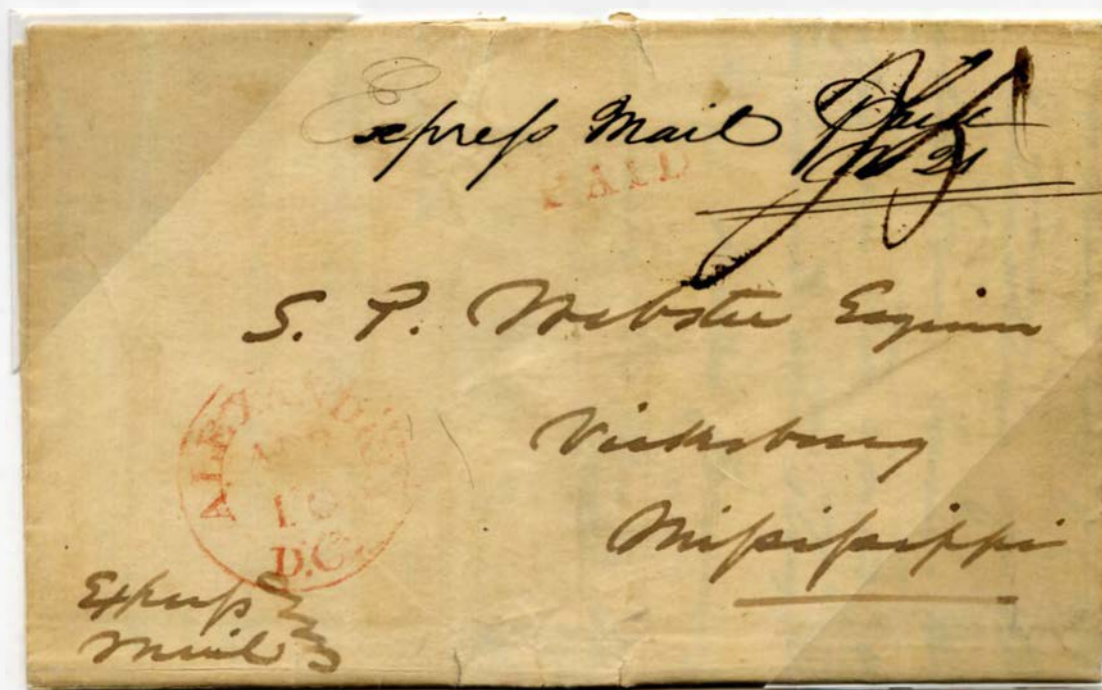 Express Mail Paid
PAID
S. P. Webster Engineer
Vicksburg
Mississippi
ALEXANDRIA
APR
10
D.C.
Express
Mail